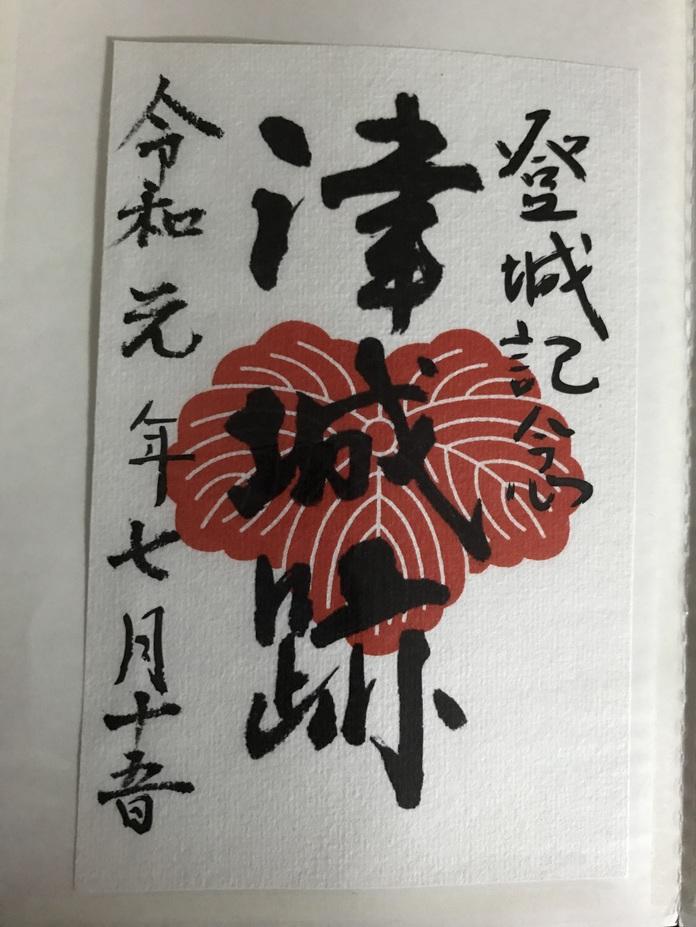 登城記念
津城跡
令和元年七月十五日